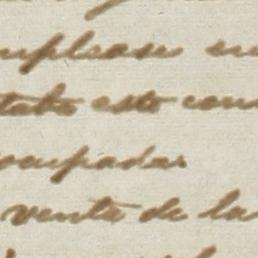 emplease en
taba esto con
ocupadas
vente de la